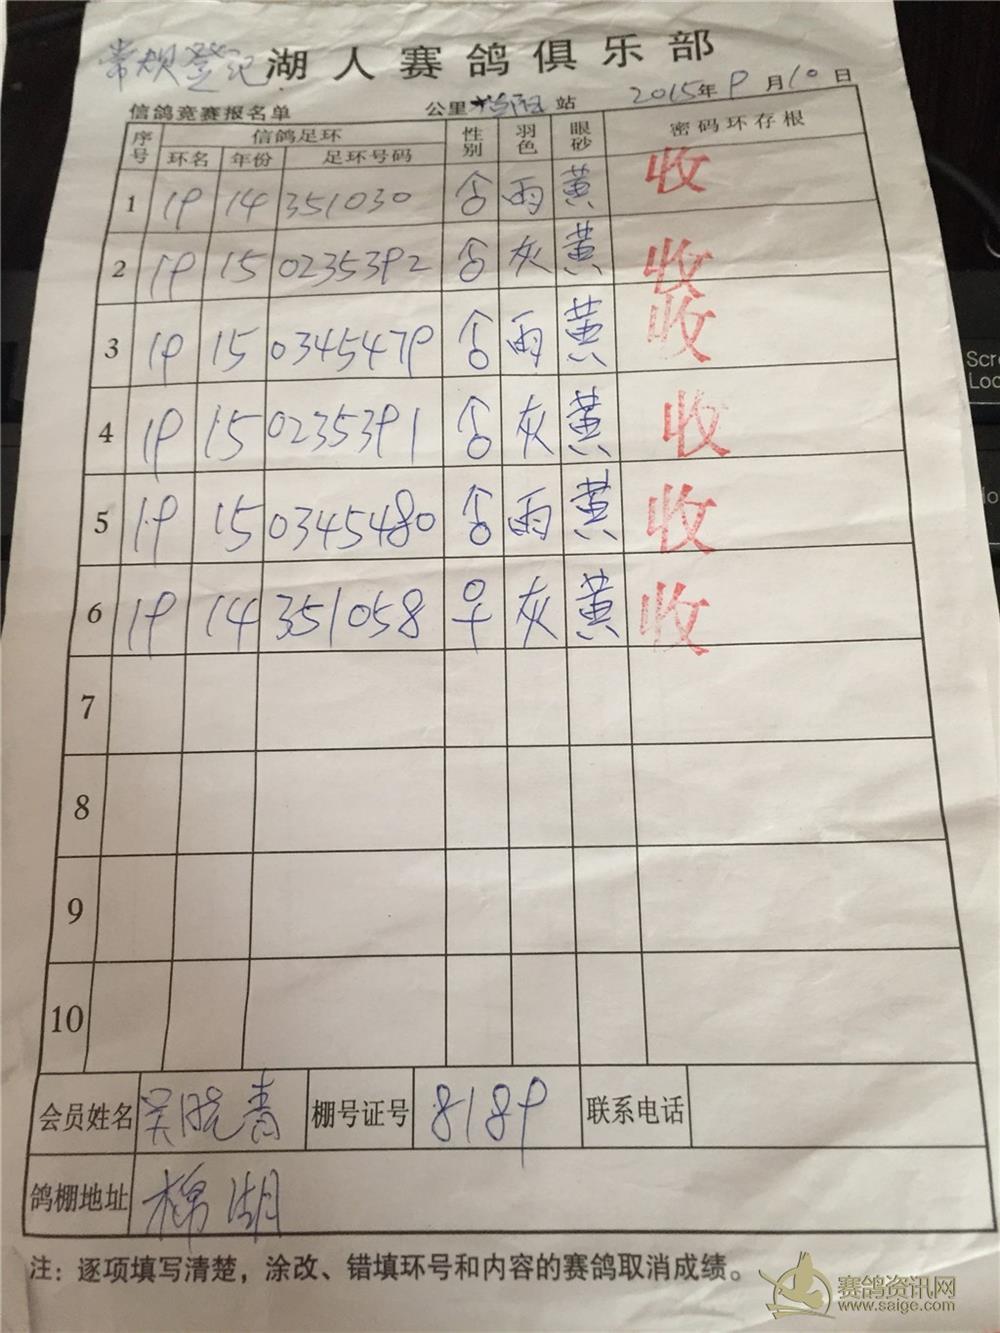 常规登记 湖人赛鸽俱乐部
信鸽竞赛报名单 公里 站 2015年9月10日
序号 信鸽足环 性别 羽色 眼砂 密码环存根
环名 年份 足环号码
1 19 14 351030 雨 黄 收
2 19 15 0235392 灰 黄 收
3 19 15 0345479 雨 黄 收
4 19 15 0235391 灰 黄 收
5 19 15 0345480 雨 黄 收
6 19 14 351058 ♀ 灰 黄 收
7
8
9
10
会员姓名 吴晓青 棚号证号 8189 联系电话
鸽棚地址 棉湖
注：逐项填写清楚，涂改、错填环号和内容的赛鸽取消成绩。
赛鸽资讯网
www.saige.com
Scr
Loc